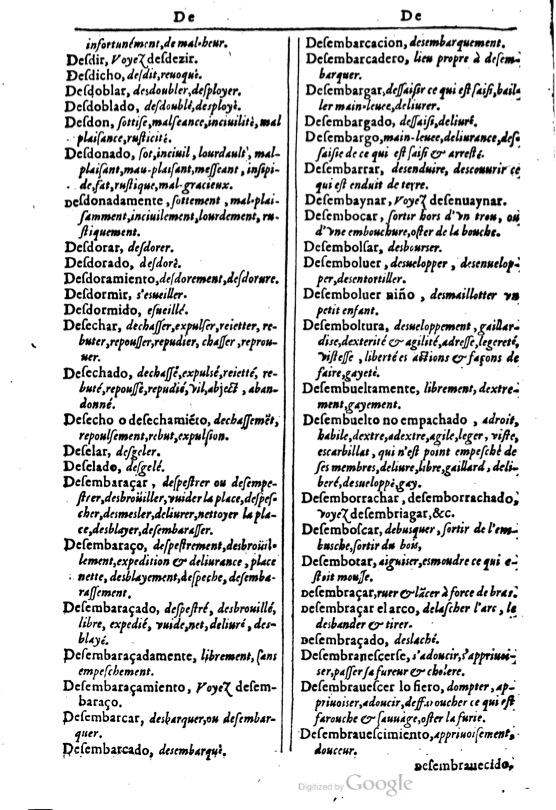 De
De
infortunément, de mal-heur.
Deſdir, Voyeζ deſdezir.
Deſdicho, deſdit, reuoqué.
Deſdoblar, deſdoubler, deſployer.
Deſdoblado, deſdoublé, deſployé.
Deſdon, ſottiſe, malſeance, inciuilité, mal
plaiſance, ruſticité.
Deſdonado, ſot, inciuil, lourdault, mal-
plaiſant, mau-plaiſant, meſſeant, inſipi-
de, fat, ruſtique, mal-gracieux.
Deſdonadamente, ſottement, mal-plai-
ſamment, inciuilement, lourdement, ru-
ſtiquement.
Deſdorar, deſdorer.
Deſdorado, deſdoré.
Deſdoramiento, deſdorement, deſdorure.
Deſdormir, s'eſueiller.
Deſdormido, eſueillé.
Deſechar, dechaſſer, expulſer, reietter, re-
buter, repouſſer, repudier, chaſſer, reprou-
uer.
Deſechado, dechaſſé, expulſé, reietté, re-
buté, repouſſé, repudié, vil, abject, aban-
donné.
Deſecho o deſechamiẽto, dechaſſemẽt,
repoulſement, rebut, expulſion.
Deſelar, deſgeler.
Deſelado, deſgelé.
Deſembaraçar, deſpeſtrer ou deſempe-
ſtrer, desbroüiller, vuider la place, deſpeſ-
cher, desmesler, deliurer, nettoyer la pla-
ce, desblayer, deſembaraſſer.
Deſembaraço, deſpeſtrement, desbroüil-
lement, expedition & deliurance, place
nette, desblayement, deſpeche, deſemba-
raſſement.
Deſembaraçado, deſpeſtré, desbrouillé,
libre, expedié, vuide, net, deliuré, des-
blayé.
Deſembaraçadamente, librement, ſans
empeſchement.
Deſembaraçamiento, Voyeζ deſem-
baraço.
Deſembarcar, desbarquer, ou deſembar-
quer.
Deſembarcado, desembarqué.
Deſembarcacion, desembarquement.
Deſembarcadero, lieu propre à deſem-
barquer.
Deſembargar, deſſaiſir ce qui eſt ſaiſi, bail-
ler main-leuee, deliurer.
Deſembargado, deſſaiſi, deliuré.
Deſembargo, main-leuee, deliurance, deſ-
ſaiſie de ce qui eſt ſaiſi & arreſté.
Deſembarrar, desenduire, descouurir ce
qui est enduit de terre.
Deſembaynar, Voyeζ deſenuaynar.
Deſembocar, ſortir hors d'vn trou, ou
d'vne embouchure, oſter de la bouche.
Deſembolſar, desbourser.
Deſemboluer, desuelopper, desenuelop-
per, desentortiller.
Deſemboluer niño, desmaillotter vn
petit enfant.
Deſemboltura, desueloppement, gaillar-
dise, dexterité & agilité, adreſſe, legereté,
viſteſſe, libertées actions & façons de
faire, gayeté.
Deſembueltamente, librement, dextre-
ment, gayement.
Deſembuelto no empachado, adroit,
habile, dextre, adextre, agile, leger, viſte,
escarbillat, qui n'eſt point empeſché de
ſes membres, deliure, libre, gaillard, deli-
beré, desueloppé, gay.
Deſemborrachar, deſemborrachado,
Voyeζ deſembriagar, &c.
Deſemboſcar, debusquer, ſortir de l'em-
busche, ſortir du bois,
Deſembotar, aiguiser, esmoudre ce qui e-
ſtoit mouſſe.
Deſembraçar, ruer & lãcer à force de bras.
Deſembraçar el arco, delaſcher l'arc, le
desbander & tirer.
Deſembraçado, deslaché.
Deſembraneſcerſe, s'adoucir, s'appriuoi-
ser, paſſer ſa fureur & cholere.
Deſembraueſcer lo fiero, dompter, ap-
priuoiser, adoucir, deffaroucher ce qui eſt
farouche & ſauuage, oſter la furie.
Deſembraueſcimiento, appriuoiſement,
douceur.
Deſembrauecido,
Digitized by Google